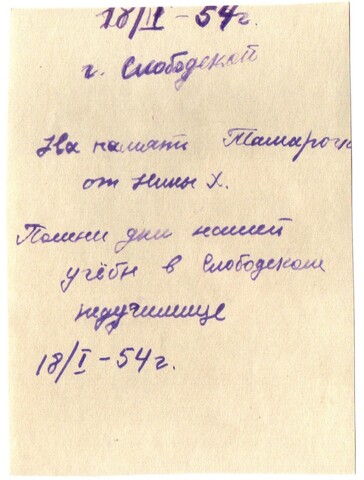 18/I - 54 г.
г. Слободской
На память Тамарочк
от Нины Х.
Помни дни нашей
учёбы в Слободском
педучилище
18/I - 54 г.